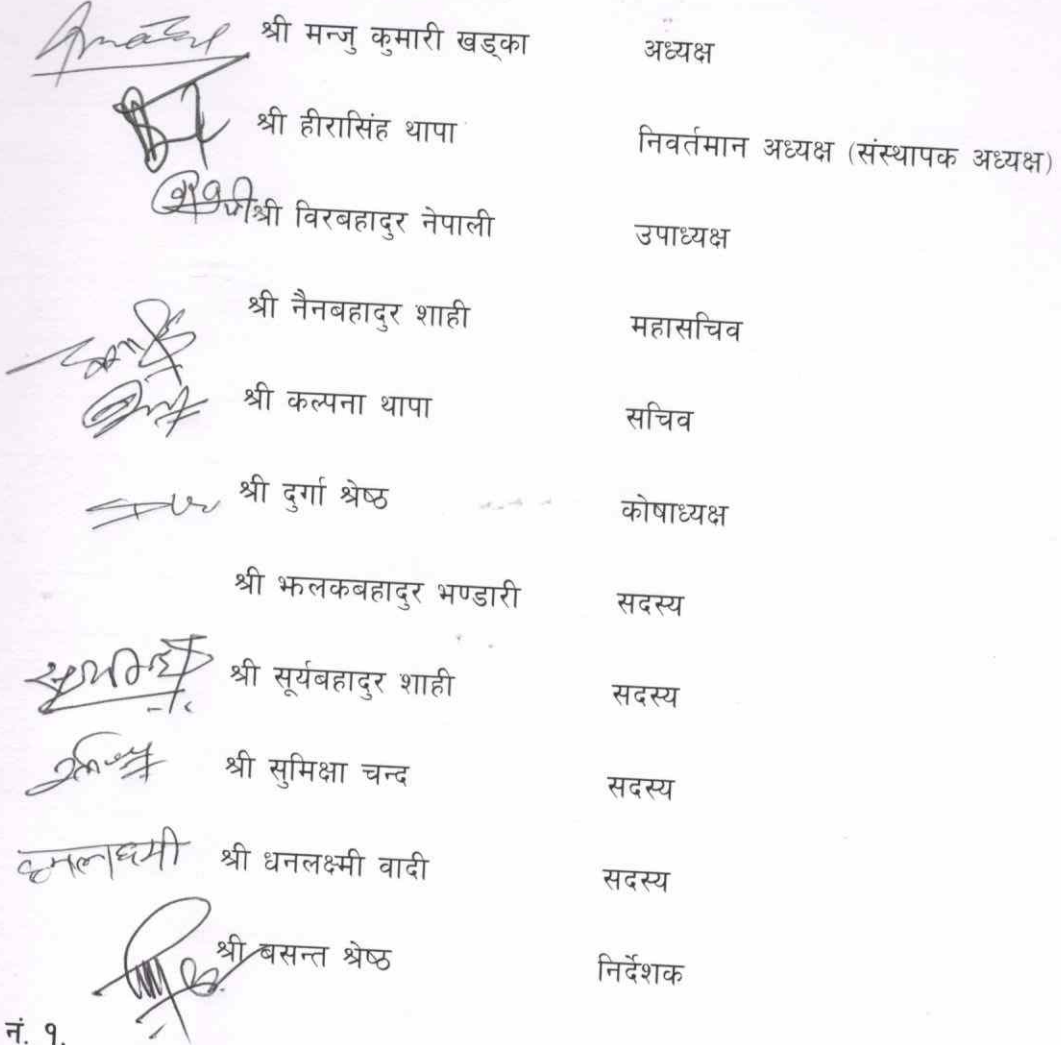 श्री मन्जु कुमारी खड्का अध्यक्ष
श्री हीरासिंह थापा निवर्तमान अध्यक्ष (संस्थापक अध्यक्ष)
श्री विरबहादुर नेपाली उपाध्यक्ष
श्री नैनबहादुर शाही महासचिव
श्री कल्पना थापा सचिव
श्री दुर्गा श्रेष्ठ कोषाध्यक्ष
श्री झलकबहादुर भण्डारी सदस्य
श्री सूर्यबहादुर शाही सदस्य
श्री सुमिक्षा चन्द सदस्य
श्री धनलक्ष्मी वादी सदस्य
श्री बसन्त श्रेष्ठ निर्देशक
नं. १.